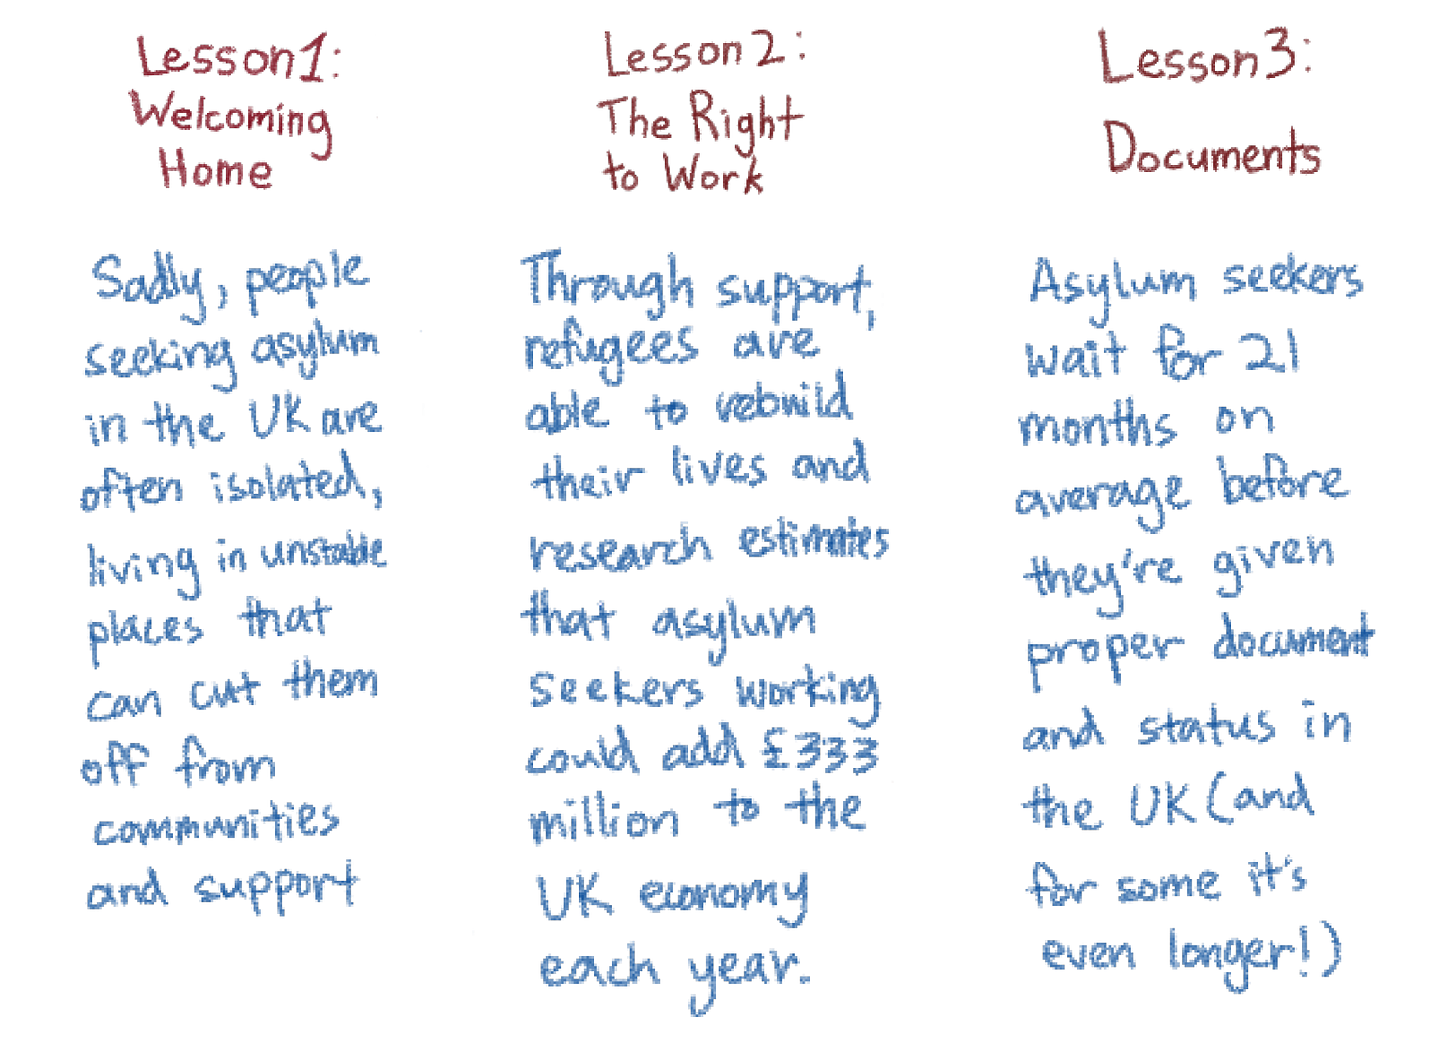 Lesson 1:
Welcoming
Home
Sadly, people
seeking asylum
in the UK are
often isolated,
living in unstable
places that
can cut them
off from
communities
and support
Lesson 2:
The Right
to Work
Through support,
refugees are
able to rebuild
their lives and
research estimates
that asylum
seekers working
could add £333
million to the
UK economy
each year.
Lesson 3:
Documents
Asylum seekers
wait for 21
months on
average before
they're given
proper document
and status in
the UK (and
for some it's
even longer!)